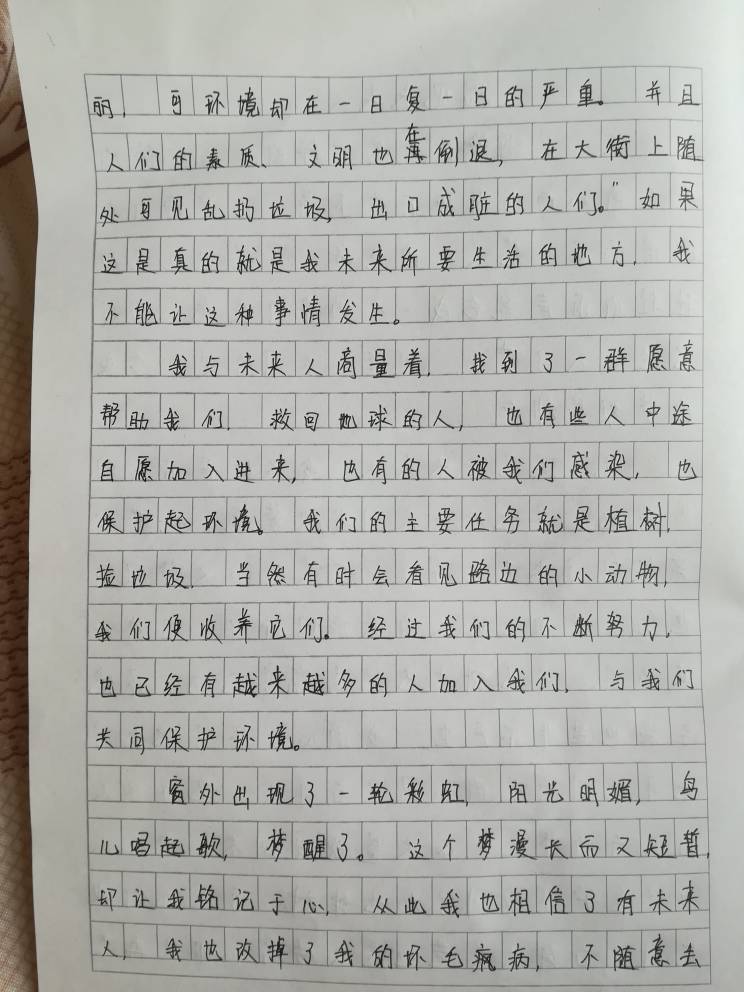 丽，可环境却在一日复一日的严重。并且
人们的素质、文明也在倒退，在大街上随
处可见乱扔垃圾，出口成脏的人们。"如果
这是真的就是我未来所要生活的地方，我
不能让这种事情发生。
我与未来人商量着，找到了一群愿意
帮助我们，救回地球的人，也有些人中途
自愿加入进来，也有的人被我们感染，也
保护起环境。我们的主要任务就是植树，
捡垃圾，当然有时会看见路边的小动物，
我们便收养它们。经过我们的不断努力，
也已经有越来越多的人加入我们，与我们
共同保护环境。
窗外出现了一轮彩虹，阳光明媚，鸟
儿唱起歌，梦醒了。这个梦漫长而又短暂，
却让我铭记于心，从此我也相信了有未来
人，我也改掉了我的坏毛疯病，不随意去